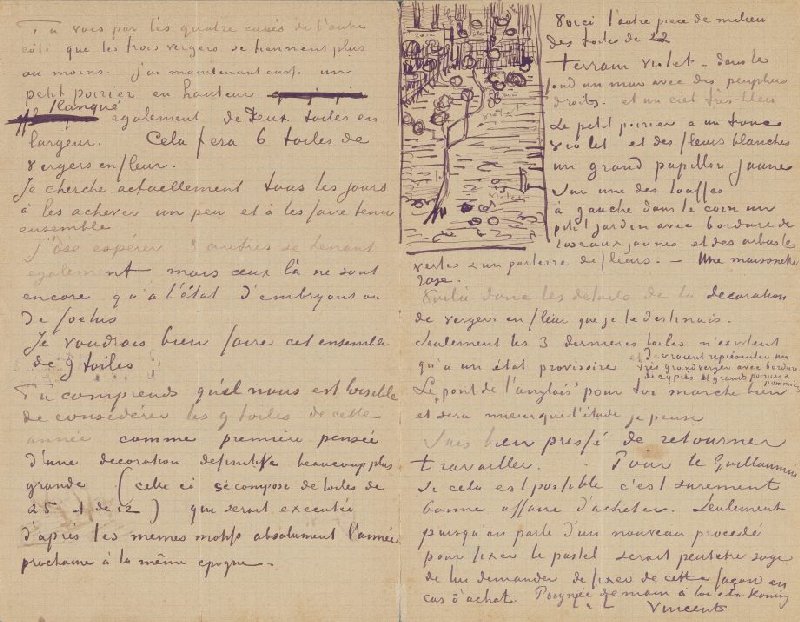 Tu vois par les quatre carrés de l'autre
côté que les trois vergers se tiennent plus
ou moins. j'ai maintenant aussi un
petit poirier en hauteur
flanqué également de deux toiles en
largeur. Cela fera 6 toiles de
vergers en fleur.
Je cherche actuellement tous les jours
à les achever un peu et à les faire tenir
ensemble
J'ôse espérer 3 autres se tenant
également mais ceux là ne sont
encore qu'à l'état d'embryons ou
de foetus
Je voudrais bien faire cet ensemble
de 9 toiles
Tu comprends qu'il nous est loisible
de considérer les 9 toiles de cette
année comme première pensée
d'une décoration définitive beaucoup plus
grande (celle ci se compose de toiles de
25 et de 12) qui serait executée
d'après les mêmes motifs absolument l'année
prochaine à la même epoque.
Voici l'autre piece de milieu
des toiles de 12
terrain violet – dans le
fond un mur avec des peupliers
droits. et un ciel très bleu
Le petit poirier a un tronc
violet et des fleurs blanches
un grand papillon jaune
sur une des touffes
à gauche dans le coin un
petit jardin avec bordure de
roseaux jaunes et des arbustes
verts & un parterre de fleurs. – Une maisonette
rose.
Voilà donc les détails de la décoration
de vergers en fleur que je te destinais.
Seulement les 3 dernieres toiles n'existent
qu'à un état provisoire et devraient représenter un
très grand verger avec bordure
de cyprès et grands poiriers & pommiers
Le "pont de l'anglois" pour toi marche bien
et sera mieux que l'étude je pense
Suis bien pressé de retourner
travailler. Pour le Guillaumin
si cela est possible c'est surement
bonne affaire d'acheter. Seulement
puisqu'on parle d'un nouveau procédé
pour fixer le pastel serait peutetre sage
de lui demander de fixer de cette façon en
cas d'achat. Poignée de main à toi & à Koning
Vincent